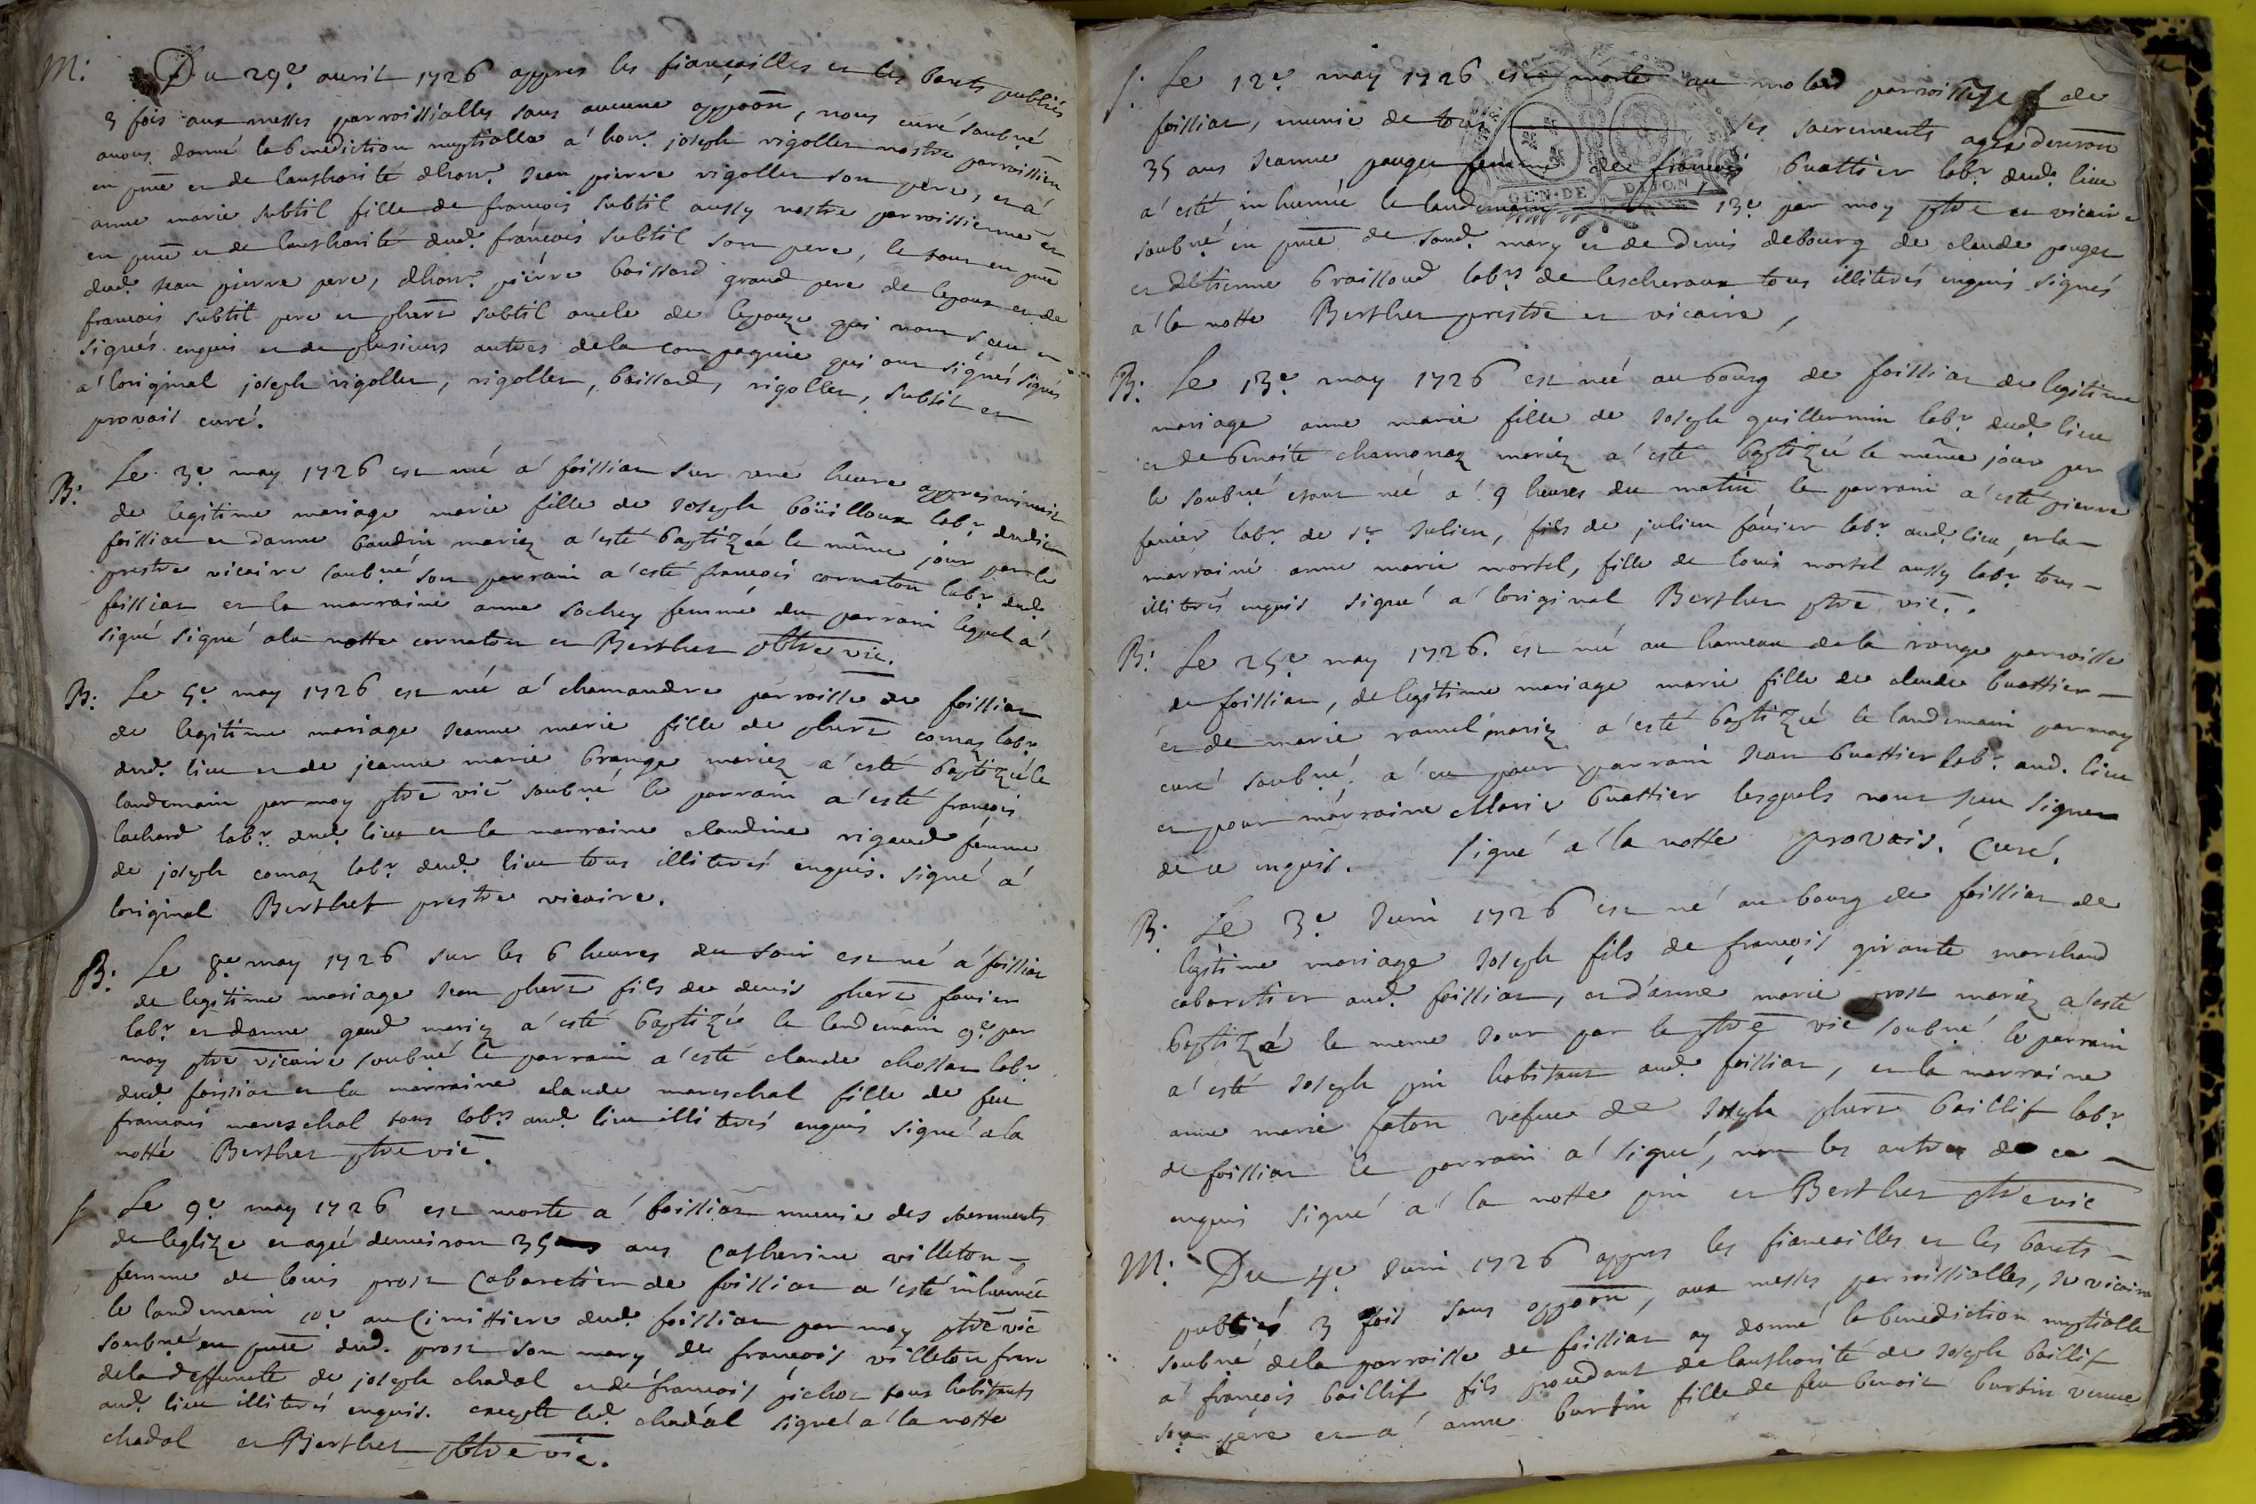 M: Du 29e. avril 1726 appres les fiançailles et les bants publiés
3 fois aux messes parroissialles sans aucune oppoon, nous curé soubné
avons donné la benediction nuptialle a hon. joseph rigollet nostre parroissien
en pnce et de lauthorité dhon. Jean pierre rigollet son pere, et a
anne marie subtil fille de françois subtil aussy nostre parroissienne et
en pnce et de lauthorité dud. françois subtil son pere, le tout en pnce
dud. Jean pierre pere, dhon. pierre boissard grand pere de lepoux et de
françois subtil pere et phert subtil oncle de lepouze qui nont sceu
signés enquis et de plusieurs autres de la compagnie qui ont signés signés
a loriginal joseph rigollet, rigollet, boissard, rigollet, subtil et
provais curé.
B: Le 3e may 1726 est né a foissiat sur une heure appres minuit
de legitime mariage marie fille de Joseph boüilloux labr. dudit
foissiat et danne baudin mariez a esté baptizéé le même jour par le
prestre vicaire soubné son parrain a esté françois cornaton labr. dud.
foissiat et la marraine anne sochey femme du parrain lequel a
signé signé a la notte cornaton et Berthet ptre vic.
B: Le 5e may 1726 est née a chamandre parroisse de foissiat
de legitime mariage Jeanne marie fille de phert comaz labr.
dud. lieu et de jeanne marie brange mariez a esté baptizé le
landemain par moy ptre vic soubné le parrain a esté françois
lachard labr. dud. lieu et la marraine claudine rigaud femme
de joseph comaz labr. dud. lieu tous illiterés enquis. signé a
loriginal Berthet prestre vicaire.
B: Le 8e may 1726 sur les 6 heures du soir est né a foissiat
de legitime mariage Jean phert fils de denis phert favier
labr. et danne gaud mariez a esté baptizée le landemain 9e par
moy ptre vicaire soubné le parrain a esté claude chossat labr.
dud. foissiat et la marraine claude mareschal fille de feu
francois mareschal tous labrs aud. lieu illiterés enquis signé a la
notté Berthet ptre vic.
S Le 9e may 1726 est morte a foissiat munie des sacrements
de leglize et agéé denviron 35 ans Catherine villeton
femme de louis prost Cabaretier de foissiat a esté inhumée
le landemain 10e au Cimittiere dud. foissiat par moy ptre vic
soubné en pnce dud. prost son mary de françois villeton frere
dela deffuncte de joseph chadal et de françois pichoz tous habitants
aud. lieu illiterés enquis. excepte led. chadal signé a la notte
chadal et Berthet ptre vic.
S. Le 12e. may 1726 est morte au molard parroisse de
foissiat, munie de tous ses sacrements agéé denviron
35 ans Jeanne pauget femme de françois buattier labr. dud. lieu
a esté inhumé le landemain 13e par moy ptre et vicaire
soubné en pnce de sond. mary et de denis debourg de claude pauget
et d'étienne braissoud labrs de lescheroux tous illiterés enquis signés
a la notte Berthet prestre et vicaire,
B: Le 13e. may 1726 est née au bourg de foissiat de legitime
mariage anne marie fille de Joseph guillermin labr. dud. lieu
et de benoite chamonaz mariez a esté baptizéé le même jour par
le soubné estant née a 9 heures du matin le parrain a esté pierre
favier labr. de st. Julien, fils de julien favier labr. aud. lieu, et la
marraine anne marie mortel, fille de louis mortel aussy labr. tous
illiterés enquis signé a loriginal Berthet ptre vic.
B: Le 25e may 1726. est né au hameau de la rouge parroisse
de foissiat, de legitime mariage marie fille de claude buattier
et de marie ravel mariez a esté baptizéé le landemain par moy
curé soubné. a eu pour parrain Jean buattier labr. aud. lieu
et pour marraine Marie buattier lesquels nont sceu signer
de ce enquis. signé a la notte provais. Curé.
B. Le 3e Juin 1726 est né au bourg de foissiat de
legitime mariage Joseph fils de françois girante marchand
cabaretier aud. foissiat, et d'anne marie prost mariez a esté
baptizé le meme Jour par le ptre vic soubné le parrain
a esté Joseph pin habitant aud. foissiat, et la marraine
anne marie faton vefue de Joseph phert baillif labr.
de foissiat le parrain a signé, non les autres de ce
enquis signé a la notte pin et Berthet ptre vic
M: Du 4e Juin 1726 appres les fiancailles et les bants
publiés 3 fois sans oppoon, aux messes parroissialles, Je vicaire
soubné dela parroisse de foissiat ay donné la benediction nuptialle
a françois baillif fils procedant de lauthorité de Joseph baillif
son pere et a anne burtin fille de feu benoit burtin venue
GEN. DE DIJON